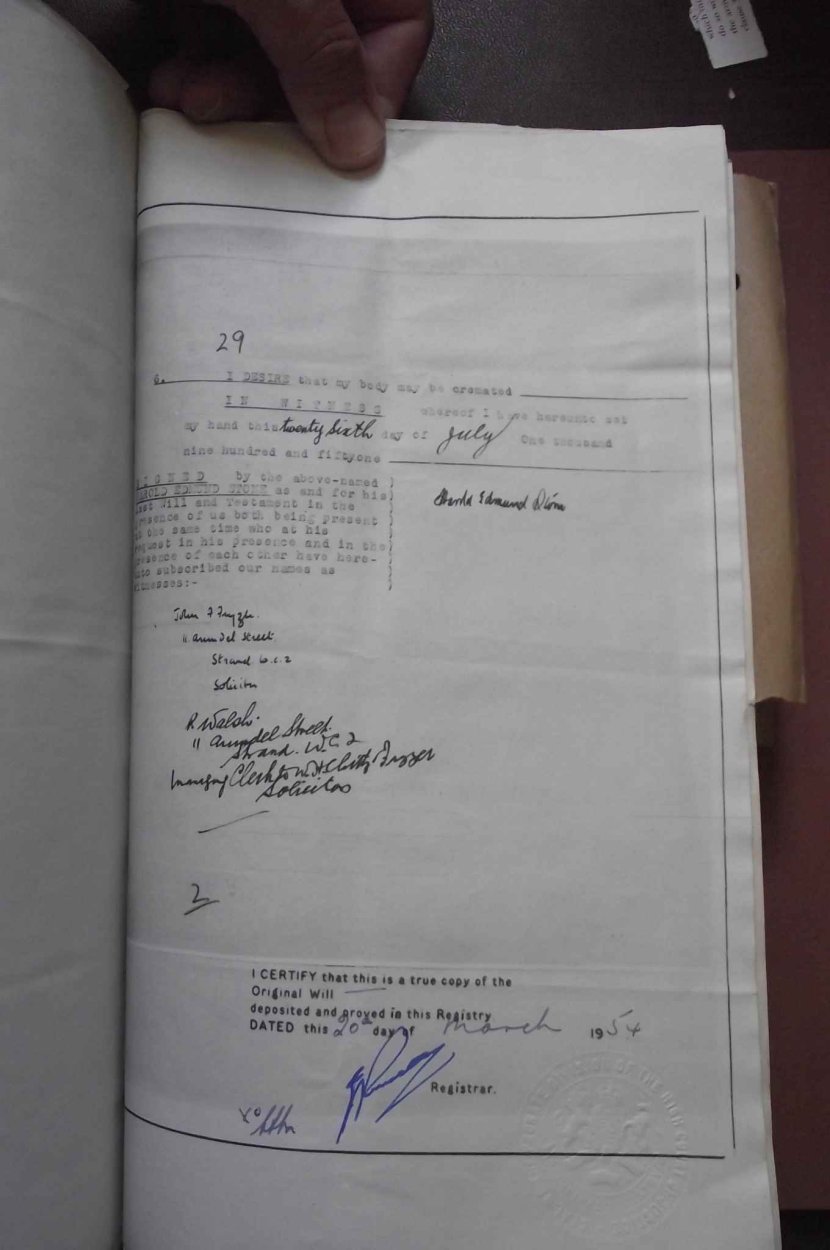 29
6. I DESIRE that my body may be cremated
IN WITNESS whereof I have hereunto set
my hand this twenty sixth day of July One thousand
nine hundred and fiftyone
SIGNED by the above-named )
HAROLD EDMUND STONE as and for his)
last Will and Testament in the )
presence of us both being present )
at the same time who at his )
request in his presence and in the )
presence of each other have here- )
unto subscribed our names as )
witnesses:- )
Harold Edmund Stone
John F
11 Arundel Street
Strand W.C.2
Solicitor
R. Walsh.
11 Arundel Street.
Strand. W.C.2
Managing Clerk to
Solicitors
2
I CERTIFY that this is a true copy of the
Original Will
deposited and proved in this Registry
DATED this 20th day of March 1954
Registrar.